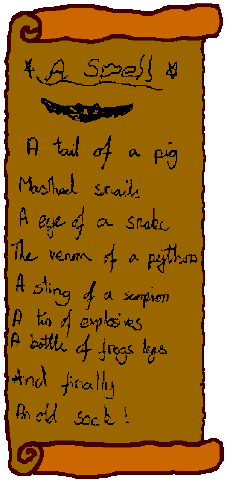 A Smell
A tail of a pig
Mashed snails
A eye of a snake
The venom of a python
A sting of a scorpion
A tin of explosives
A bottle of frogs legs
And finally
An old sock!